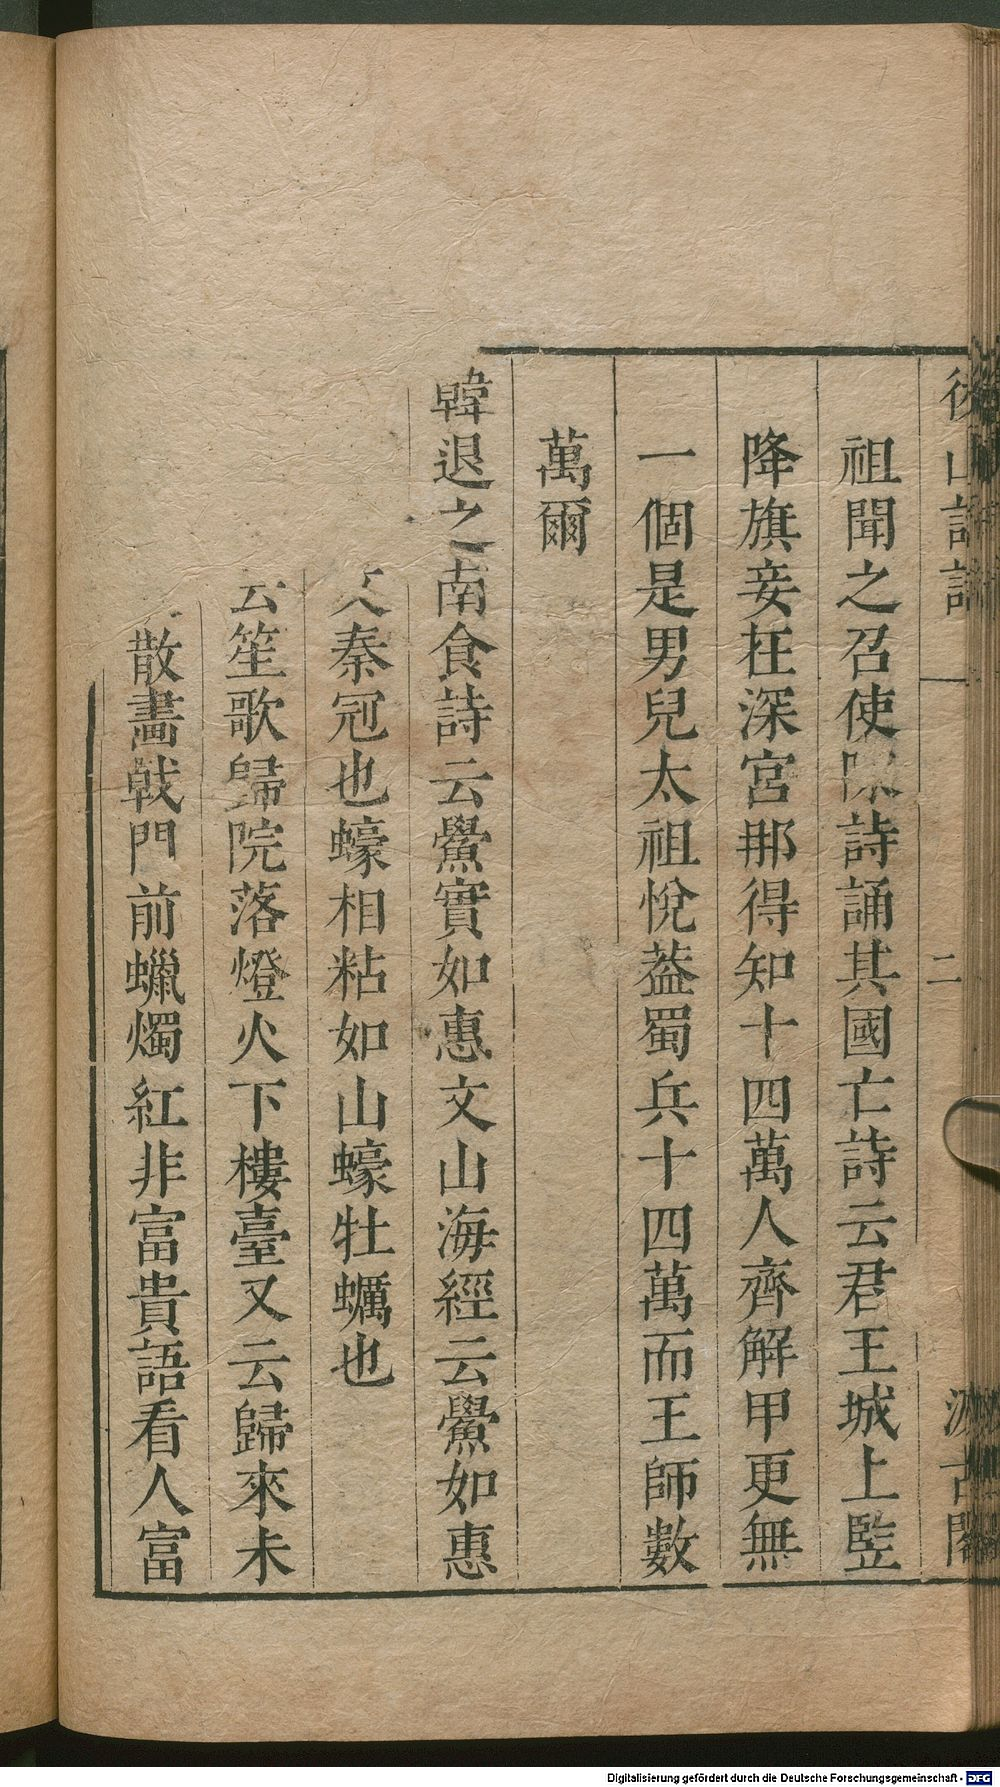 後山詩話 二 汲古閣
祖聞之召使陳詩誦其國亡詩云君王城上竪
降旗妾在深宮那得知十四萬人齊解甲更無
一個是男兒太祖悅葢蜀兵十四萬而王師數
萬爾
韓退之南食詩云鱟實如惠文山海經云鱟如惠
文秦冠也蠔相粘如山蠔牡蠣也
云笙歌歸院落燈火下樓臺又云歸來未
散畵戟門前蠟燭紅非富貴語看人富
Digitalisierung gefördert durch die Deutsche Forschungsgemeinschaft - DFG